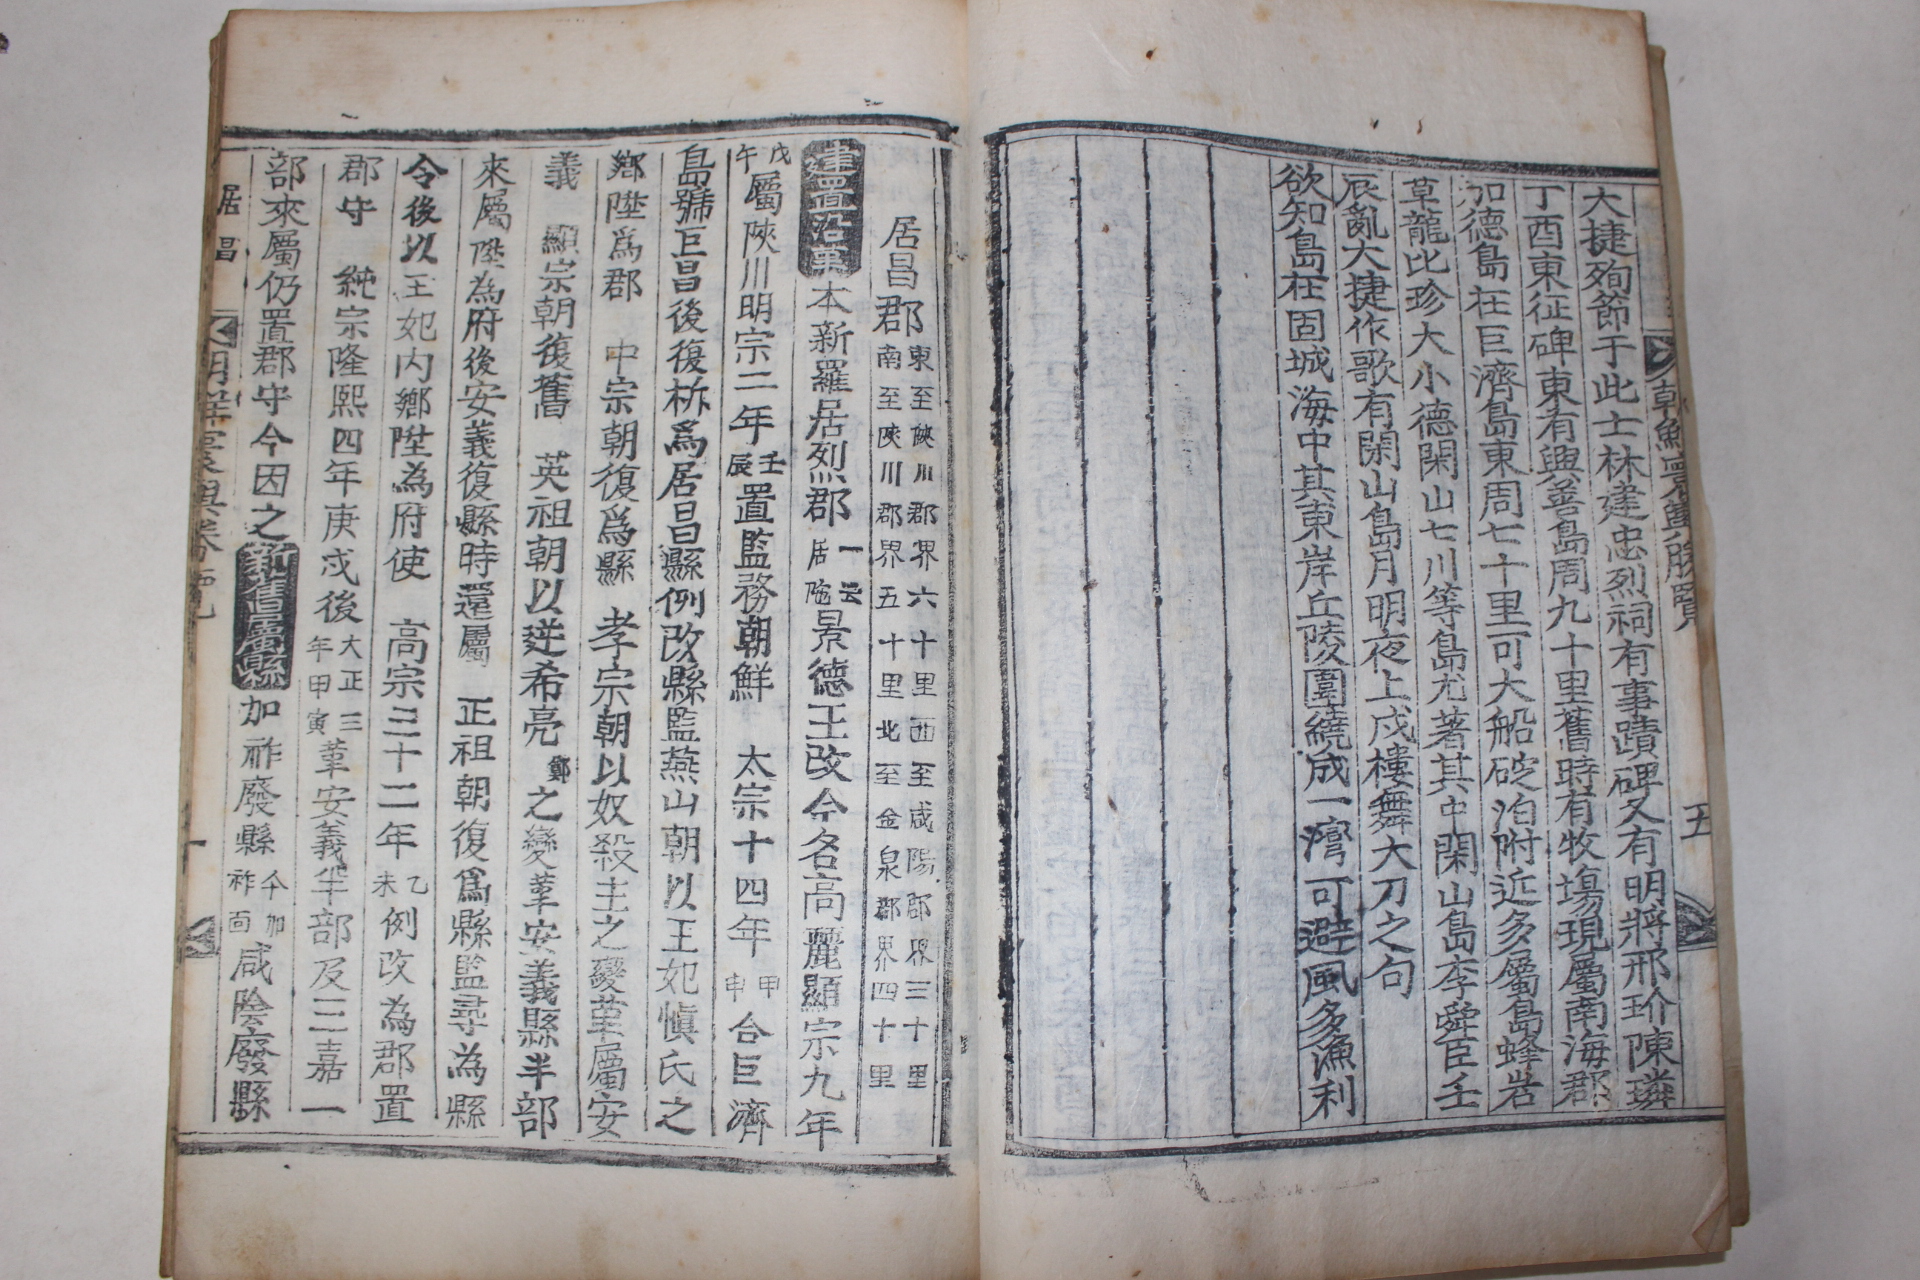 大捷殉節于此士林建忠烈祠有事蹟碑又有明將邢玠陳璘
丁酉東征碑東有興善島周九十里舊時有牧場現屬南海郡
加德島在巨濟島東周七十里可大船碇泊附近多屬島蜂岩
草龍比珍大小德閑山七川等島尤著其中閑山島李舜臣壬
辰亂大捷作歌有閑山島月明夜上戍樓舞大刀之句
欲知島在固城海中其東岸丘陵圍繞成一灣可避風多漁利
朝鮮寰輿勝覽
五
居昌郡 東至陜川郡界六十里西至咸陽郡界三十里
南至陜川郡界五十里北至金泉郡界四十里
建置沿革 本新羅居烈郡 一云居陁 景德王改今名高麗顯宗九年
戊午 屬陜川明宗二年 壬辰 置監務朝鮮 太宗十四年 甲申 合巨濟
島號巨昌後復柝爲居昌縣例改縣監燕山朝以王妃愼氏之
鄉陞爲郡 中宗朝復爲縣 孝宗朝以奴殺主之變革屬安
義 顯宗朝復舊 英祖朝以逆希亮 鄭 之變革安義縣半部
來屬陞為府後安義復縣時還屬 正祖朝復爲縣監尋為縣
令後以王妃内鄉陞為府使 高宗三十二年 乙未 例改為郡置
郡守 純宗隆熙四年庚戌後 大正三年甲寅 革安義半部及三嘉一
部來屬仍置郡守今因之 新舊屬縣 加祚廢縣 今加祚面 咸陰廢縣
居昌
朝鮮寰輿勝覽
一